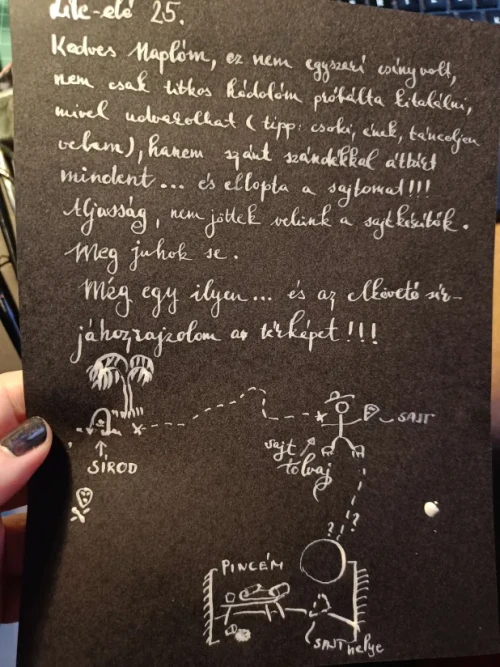 Lilc-elő 25.
Kedves Naplóm, ez nem egyszeri csíny volt,
nem csak titkos hódolóm próbálta kitalálni,
mivel udvarolhat (tipp: csoki, ének, táncoljon
velem), hanem szánt szándékkal átkért
mindent... és ellopta a sajtomat!!!
Aljasság, nem jöttek velünk a sajtkészítők.
Meg juhok se.
Még egy ilyen... és az elkövető sír-
jáhozrajzolom a térképet!!!
SAJT
sajt
tolvaj
SÍROD
? ! ?
PINCÉM
SAJT helye